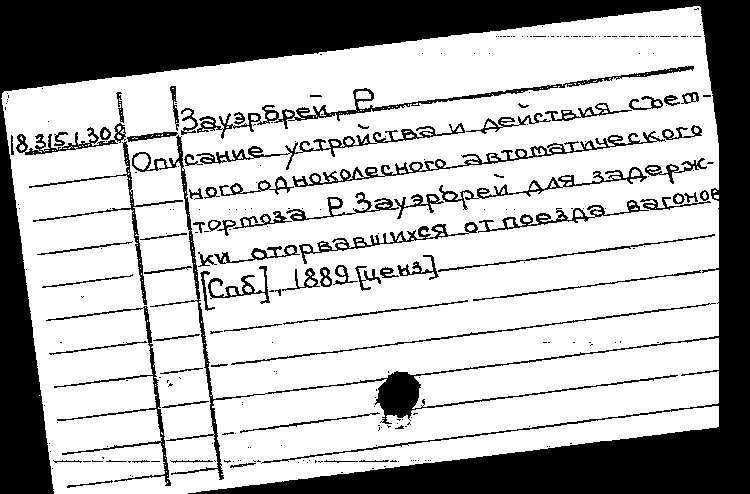 18.315.1.308
Зауэрбрей, Р.
Описание устройства и действия съем-
ного одноколесного автоматического
тормоза Р. Зауэрбрей для задерж-
ки оторвавшихся от поезда вагонов
[Спб.], 1889 [ценз.]